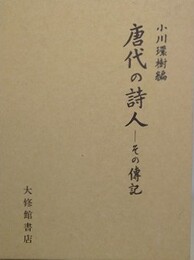 小川環樹編
唐代の詩人―その傳記
大修館書店